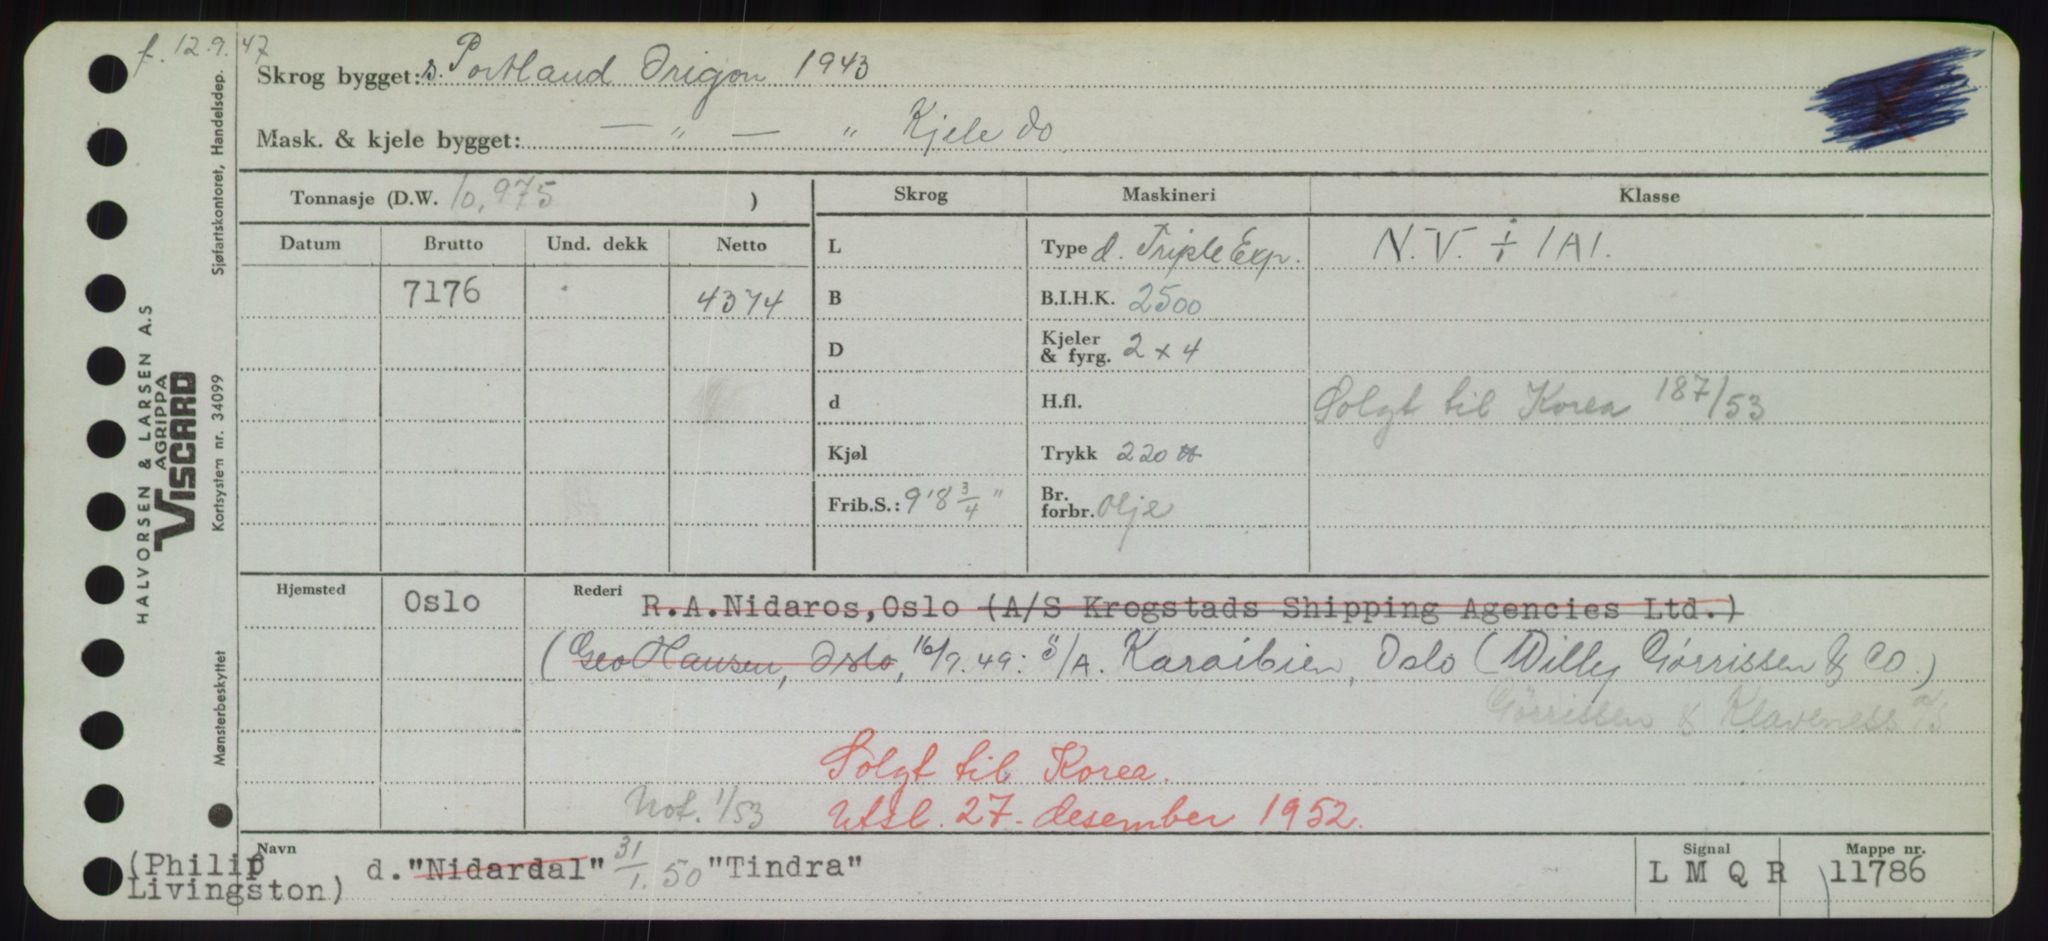 f. 12.9.47
Skrog bygget: s. Portland Origon 1943
Mask. & kjele bygget: — " — " Kjele do
Tonnasje (D.W. 10,975 )
Skrog Maskineri Klasse
Datum Brutto Und. dekk Netto
7176 4374
L
B
D
d
Kjøl
Frib.S.: 9'8 3/4"
Type d. Triple Exp.
B.I.H.K. 2500
Kjeler & fyrg. 2 x 4
H.fl.
Trykk 220 lb
Br. forbr. olje
N.V. ∔ 1A1.
Solgt til Korea 187/53
Hjemsted Oslo
Rederi R.A.Nidaros,Oslo (A/S Krogstads Shipping Agencies Ltd.)
(Geo Hansen, Oslo, 16/7.49: S/A. Karaibien, Oslo (Willy Gørrissen & Co.)
Gørrissen & Klaveness A/S
Solgt til Korea.
Not. 1/53 Utsl. 27. desember 1952.
Navn Signal Mappe nr.
(Philip Livingston) d. "Nidardal" 31/1.50 "Tindra" L M Q R 11786
HALVORSEN & LARSEN A.S
AGRIPPA
VISCARD
Sjøfartskontoret, Handelsdep.
Kortsystem nr. 34099
Mønsterbeskyttet